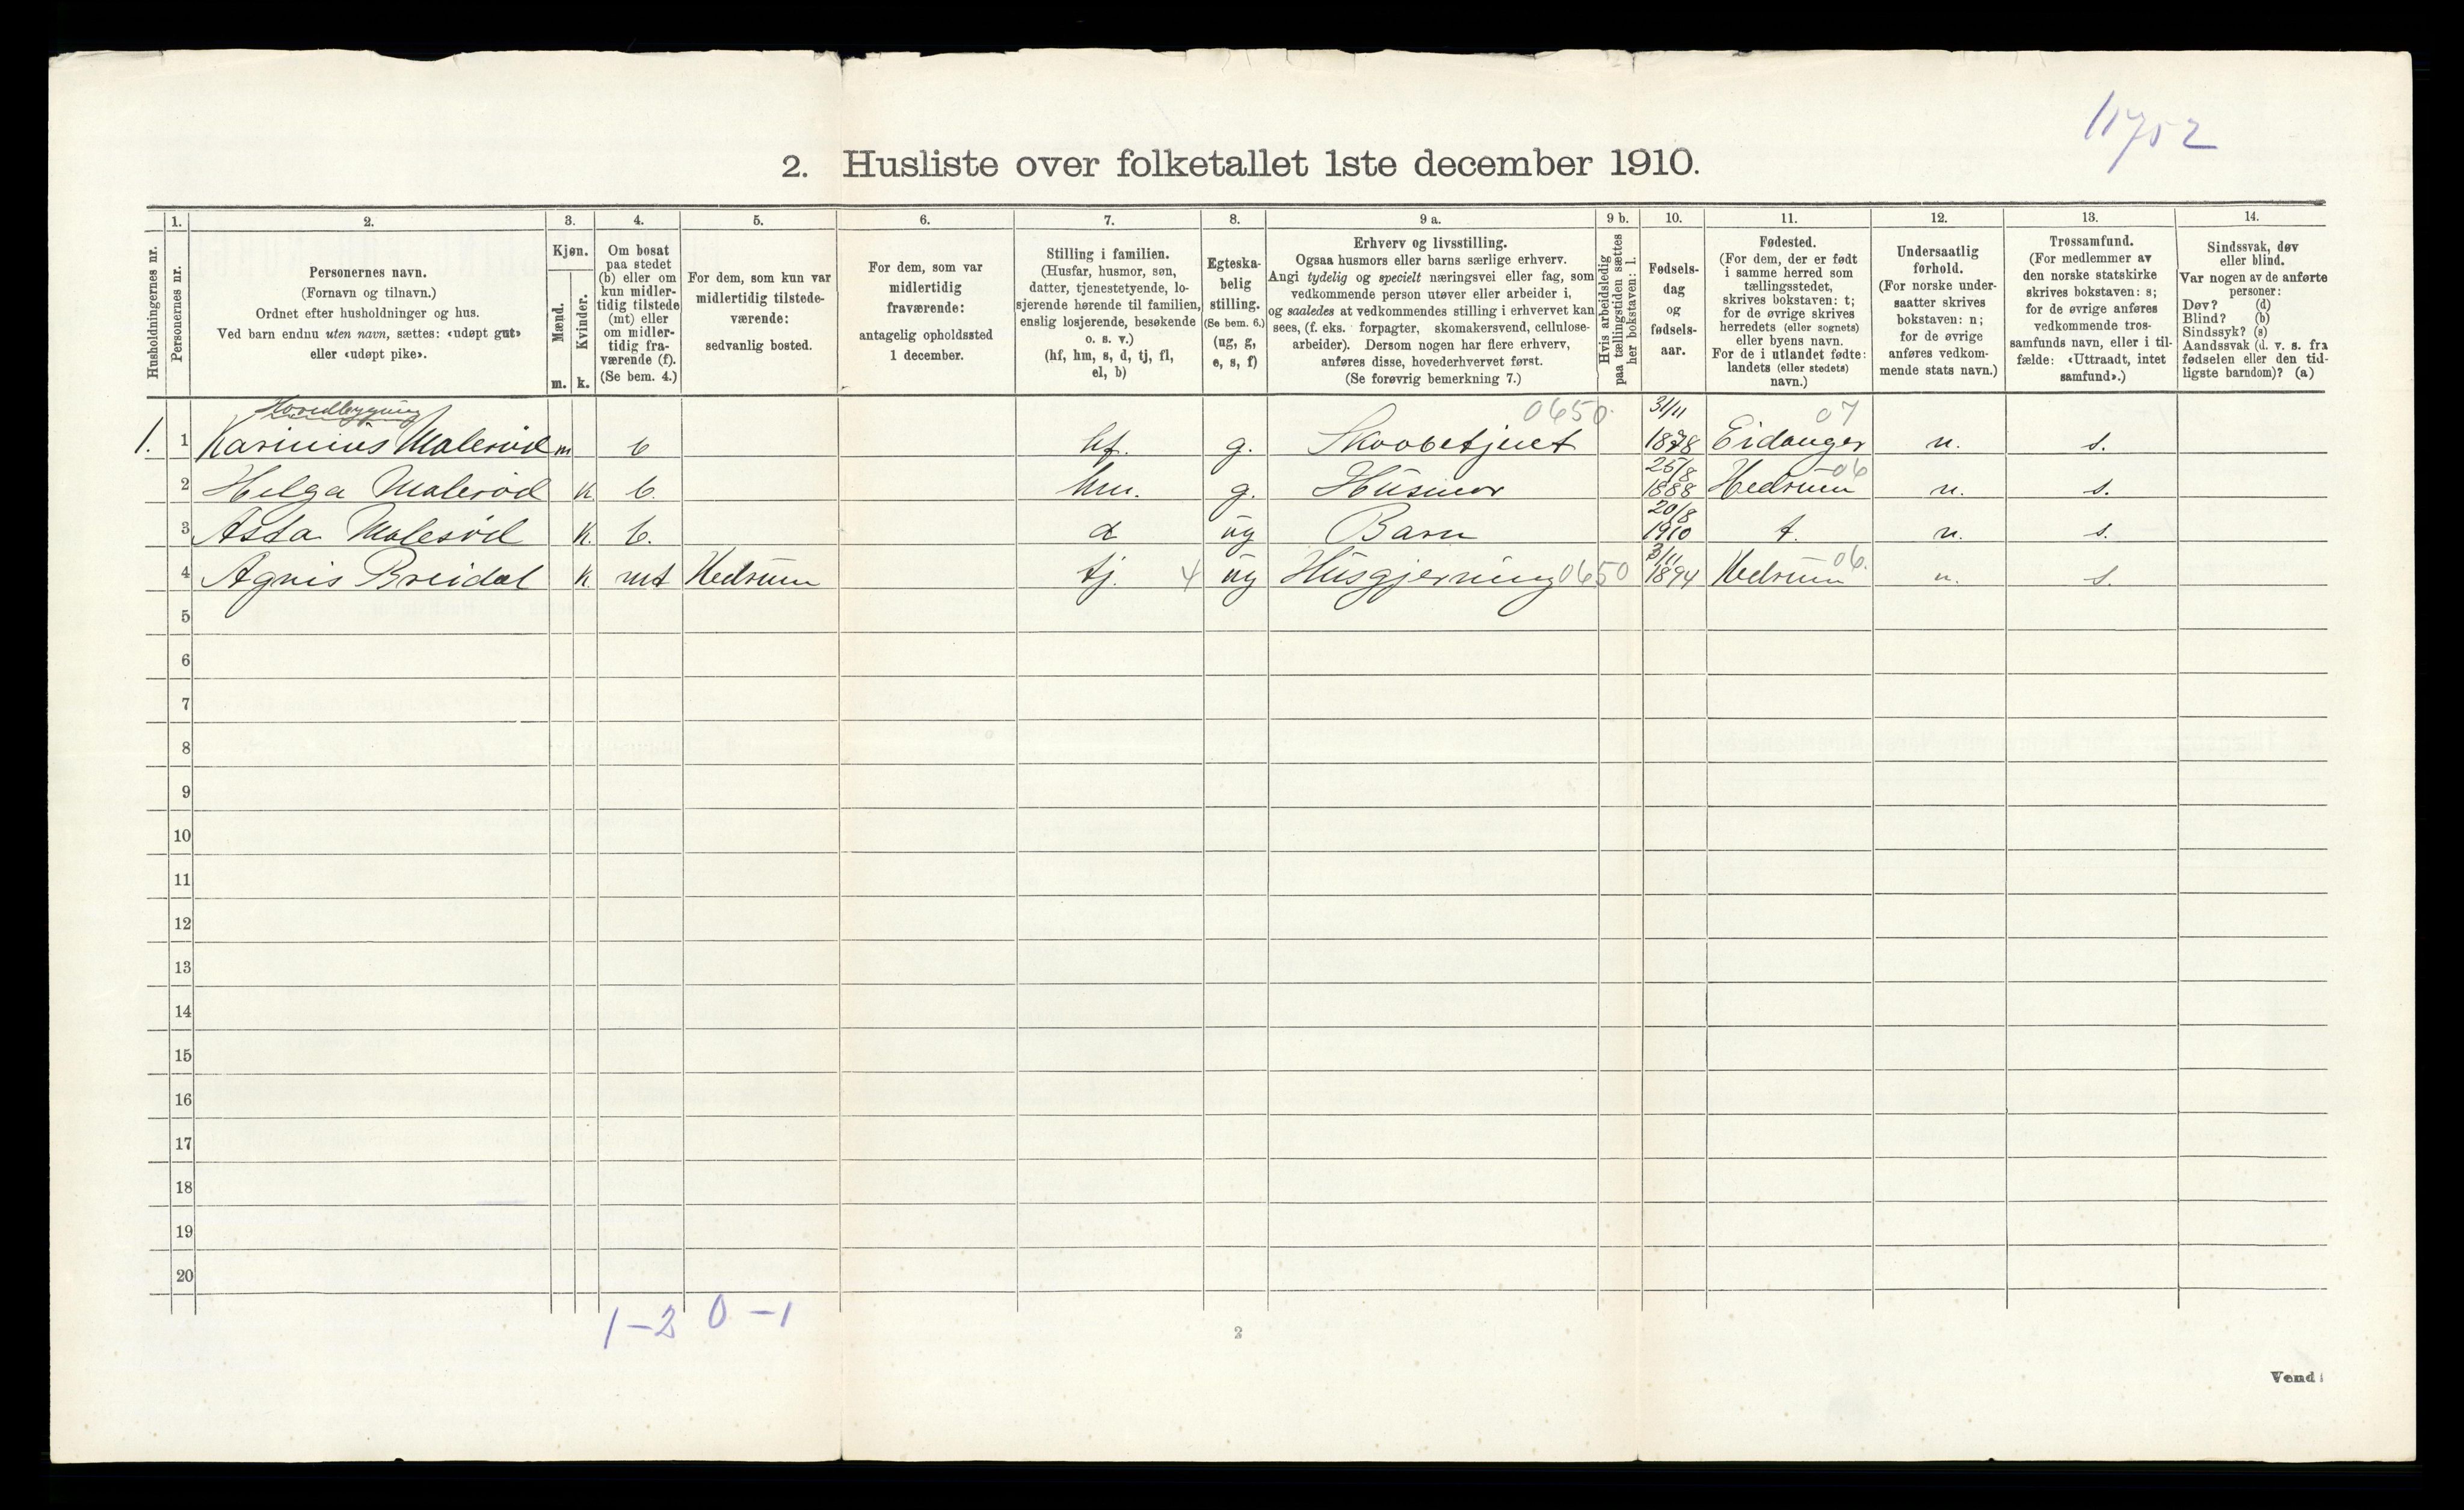 11752
2. Husliste over folketallet 1ste december 1910.
1. 2. 3. 4. 5. 6. 7. 8. 9 a. 9 b. 10. 11. 12. 13. 14.
Husholdningernes nr.
Personernes nr.
Personernes navn.
(Fornavn og tilnavn.)
Ordnet efter husholdninger og hus.
Ved barn endnu uten navn, sættes: «udøpt gut»
eller «udøpt pike».
Kjøn.
Mænd.
Kvinder.
m. k.
Om bosat
paa stedet
(b) eller om
kun midler-
tidig tilstede
(mt) eller
om midler-
tidig fra-
værende (f).
(Se bem. 4.)
For dem, som kun var
midlertidig tilstede-
værende:
sedvanlig bosted.
For dem, som var
midlertidig
fraværende:
antagelig opholdssted
1 december.
Stilling i familien.
(Husfar, husmor, søn,
datter, tjenestetyende, lo-
sjerende hørende til familien,
enslig losjerende, besøkende
o. s. v.)
(hf, hm, s, d, tj, fl,
el, b)
Egteska-
belig
stilling.
(Se bem. 6.)
(ug, g,
e, s, f)
Erhverv og livsstilling.
Ogsaa husmors eller barns særlige erhverv.
Angi tydelig og specielt næringsvei eller fag, som
vedkommende person utøver eller arbeider i,
og saaledes at vedkommendes stilling i erhvervet kan
sees, (f. eks. forpagter, skomakersvend, cellulose-
arbeider). Dersom nogen har flere erhverv,
anføres disse, hovederhvervet først.
(Se forøvrig bemerkning 7.)
Hvis arbeidsledig
paa tællingstiden sættes
her bokstaven: l.
Fødsels-
dag
og
fødsels-
aar.
Fødested.
(For dem, der er født
i samme herred som
tællingsstedet,
skrives bokstaven: t;
for de øvrige skrives
herredets (eller sognets)
eller byens navn.
For de i utlandet fødte:
landets (eller stedets)
navn.)
Undersaatlig
forhold.
(For norske under-
saatter skrives
bokstaven: n;
for de øvrige
anføres vedkom-
mende stats navn.)
Trossamfund.
(For medlemmer av
den norske statskirke
skrives bokstaven: s;
for de øvrige anføres
vedkommende tros-
samfunds navn, eller i til-
fælde: «Uttraadt, intet
samfund».)
Sindssvak, døv
eller blind.
Var nogen av de anførte
personer:
Døv? (d)
Blind? (b)
Sindssyk? (s)
Aandssvak (d. v. s. fra
fødselen eller den tid-
ligste barndom)? (a)
Hovedbygning 0650 31/11 07
1. 1 Karinius Malerød m b hf. g. 1878 Eidanger n. s.
25/8 06
2 Helga Malerød k b. hm. g. Husmor 1888 Hedrum n. s.
20/8
3 Asta Malerød k. b. d ug Barn 1910 t. n. s.
3/11 06.
4 Agnis Breidal k. mt Hedrum tj. 4 ug Husgjerning 0650 1894 Hedrum n. s.
5
6
7
8
9
10
11
12
13
14
15
16
17
18
19
20
1 – 2 0 – 1
2
Vend!